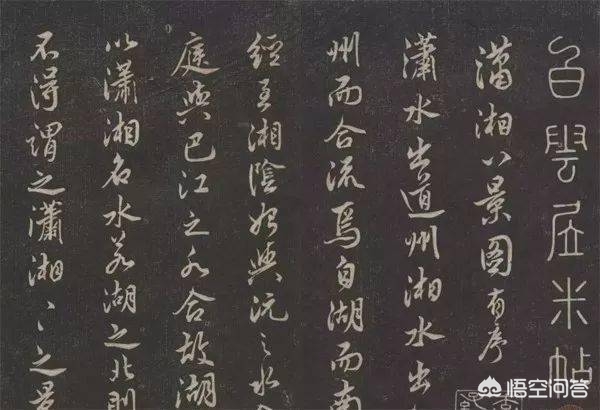 白雲居米帖
瀟湘八景图有序
瀟水出道州湘水出
州而合流焉自湖而南
經至湘陰始與沅之水
庭與巴江之水合故湖
以瀟湘名水若湖之北則
不得谓之瀟湘〻之景
悟空问答